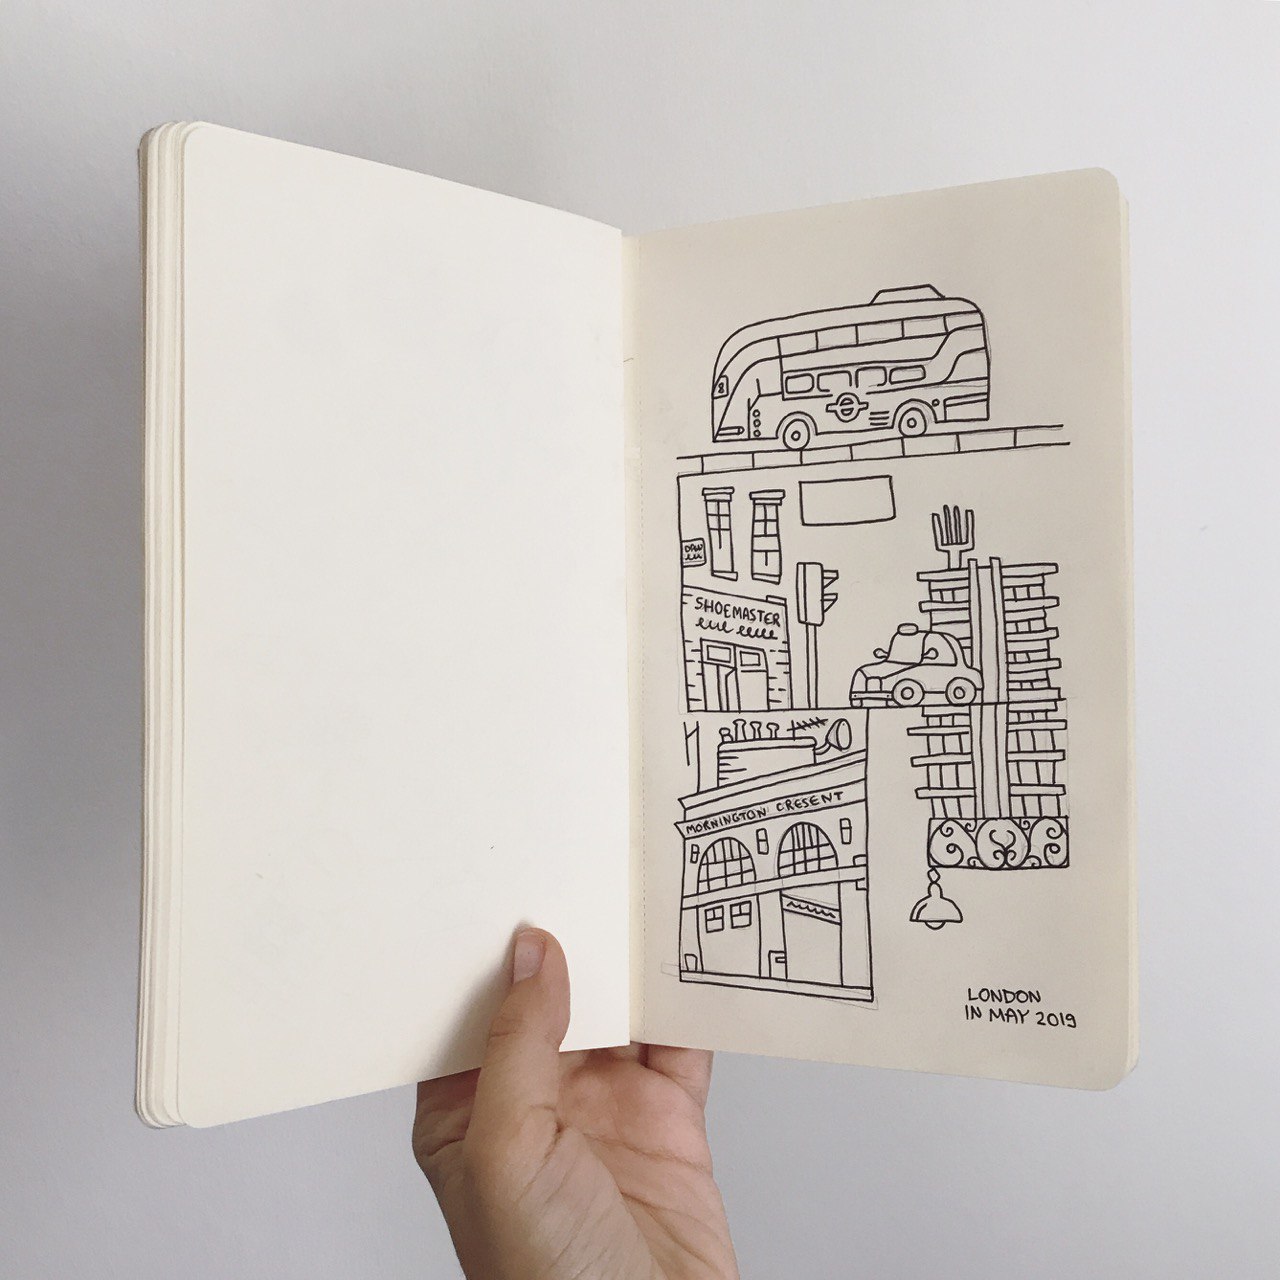 8
SHOEMASTER
MORNINGTON CRESENT
LONDON
IN MAY 2019